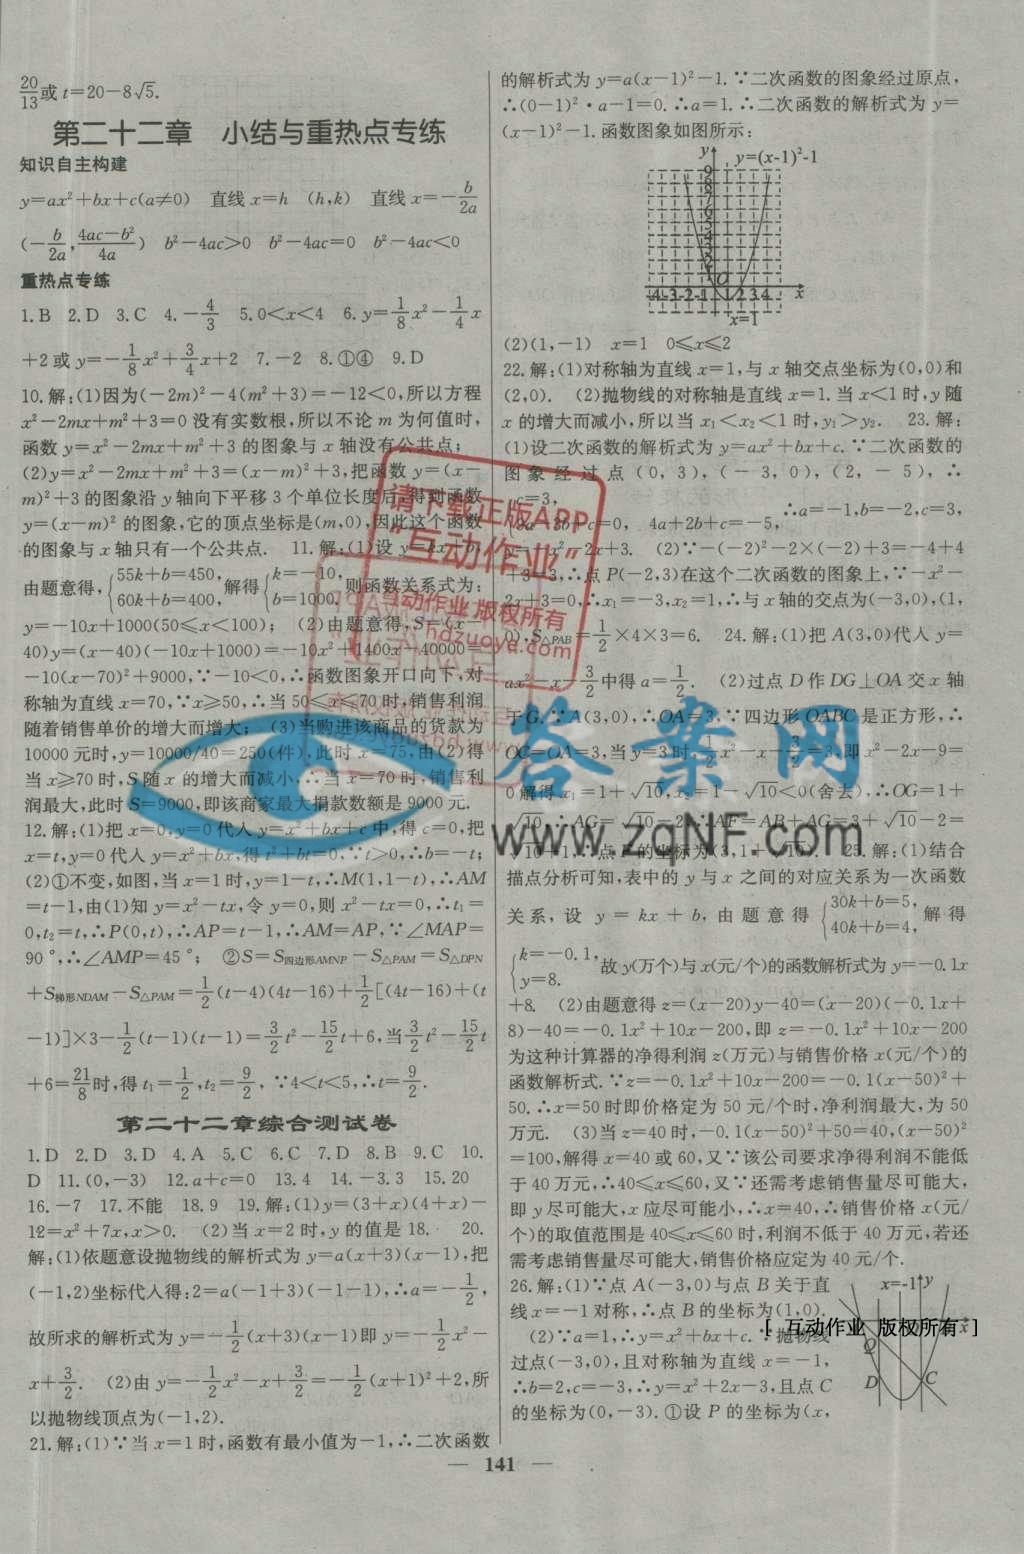 20/13或t=20-8√5.
第二十二章 小结与重热点专练
知识自主构建
y=ax²+bx+c(a≠0) 直线x=h (h,k) 直线x=-b/2a
(-b/2a,4ac-b²/4a) b²-4ac>0 b²-4ac=0 b²-4ac<0
重热点专练
1.B 2.D 3.C 4.-4/3 5.0<x<4 6.y=1/8x²-1/4x
+2或y=-1/8x²+3/4x+2 7.-2 8.①④ 9.D
10.解:(1)因为(-2m)²-4(m²+3)=-12<0,所以方程
x²-2mx+m²+3=0没有实数根,所以不论m为何值时,
函数y=x²-2mx+m²+3的图象与x轴没有公共点;
(2)y=x²-2mx+m²+3=(x-m)²+3,把函数y=(x-
m)²+3的图象沿y轴向下平移3个单位长度后,得到函数
y=(x-m)²的图象,它的顶点坐标是(m,0),因此这个函数
的图象与x轴只有一个公共点. 11.解:(1)设y=kx+b,
由题意得,{55k+b=450, 60k+b=400,解得{k=-10, b=1000,则函数关系式为:
y=-10x+1000(50≤x<100); (2)由题意得,S=(x-
40)y=(x-40)(-10x+1000)=-10x²+1400x-40000=
-10(x-70)²+9000,∵-10<0,∴函数图象开口向下,对
称轴为直线x=70,∵x≥50,∴当50≤x≤70时,销售利润
随着销售单价的增大而增大; (3)当购进该商品的货款为
10000元时,y=10000/40=250(件),此时x=75,由(2)得
当x≥70时,S随x的增大而减小,∴当x=70时,销售利
润最大,此时S=9000,即该商家最大捐款数额是9000元.
12.解:(1)把x=0,y=0代人y=x²+bx+c中,得c=0,把
x=t,y=0代人y=x²+bx,得t²+bt=0,∵t>0,∴b=-t;
(2)①不变,如图,当x=1时,y=1-t,∴M(1,1-t),∴AM
=t-1,由(1)知y=x²-tx,令y=0,则x²-tx=0,∴t₁=
0,t₂=t,∴P(0,t),∴AP=t-1,∴AM=AP,∵∠MAP=
90°,∴∠AMP=45°; ②S=S四边形AMNP-S△PAM=S△DPN
+S梯形NDAM-S△PAM=1/2(t-4)(4t-16)+1/2[(4t-16)+(t
-1)]×3-1/2(t-1)(t-1)=3/2t²-15/2t+6,当3/2t²-15/2t
+6=21/8时,得t₁=1/2,t₂=9/2,∵4<t<5,∴t=9/2.
第二十二章综合测试卷
1.D 2.D 3.D 4.A 5.C 6.C 7.D 8.B 9.C 10.
D 11.(0,-3) 12.a+c=0 13.4 14.-3.3 15.20
16.-7 17.不能 18.9 19.解:(1)y=(3+x)(4+x)-
12=x²+7x,x>0. (2)当x=2时,y的值是18. 20.
解:(1)依题意设抛物线的解析式为y=a(x+3)(x-1),把
(-1,2)坐标代人得:2=a(-1+3)(-1-1),∴a=-1/2,
故所求的解析式为y=-1/2(x+3)(x-1)即y=-1/2x²-
x+3/2. (2)由y=-1/2x²-x+3/2=-1/2(x+1)²+2,所
以抛物线顶点为(-1,2).
21.解:(1)∵当x=1时,函数有最小值为-1,∴二次函数
的解析式为y=a(x-1)²-1.∵二次函数的图象经过原点,
∴(0-1)²·a-1=0.∴a=1.∴二次函数的解析式为y=
(x-1)²-1.函数图象如图所示:
y
y=(x-1)²-1
9
8
7
6
5
4
3
2
1
O
-4-3-2-1 1 2 3 4 x
x=1
(2)(1,-1) x=1 0≤x≤2
22.解:(1)对称轴为直线x=1,与x轴交点坐标为(0,0)和
(2,0). (2)抛物线的对称轴是直线x=1.当x<1时,y随
x的增大而减小,所以当x₁<x₂<1时,y₁>y₂. 23.解:
(1)设二次函数的解析式为y=ax²+bx+c.∵二次函数的
图象经过点(0,3),(-3,0),(2,-5),∴
c=3,
9a-3b+c=0, 4a+2b+c=-5, ∴a=-1,b=-2,c=3,
y=-x²-2x+3. (2)∵-(-2)²-2×(-2)+3=-4+4
+3=3,∴点P(-2,3)在这个二次函数的图象上,∵-x²-
2x+3=0,∴x₁=-3,x₂=1,∴与x轴的交点为(-3,0),(1,
0),S△PAB=1/2×4×3=6. 24.解:(1)把A(3,0)代人y=
ax²-x-3/2中得a=1/2. (2)过点D作DG⊥OA交x轴
于G.∵A(3,0),∴OA=3,∵四边形OABC是正方形,∴
OC=OA=3,当y=3时,1/2x²-x-3/2=3,即x²-2x-9=
0解得x₁=1+√10,x₂=1-√10<0(舍去),∴OG=1+
√10,∴AG=√10-2.∴AF=AB+AG=3+√10-2=
√10+1,∴点F的坐标为(3,1+√10). 25.解:(1)结合
描点分析可知,表中的y与x之间的对应关系为一次函数
关系,设y=kx+b,由题意得{30k+b=5, 40k+b=4,解得
{k=-0.1, y=8.故y(万个)与x(元/个)的函数解析式为y=-0.1x
+8. (2)由题意得z=(x-20)y-40=(x-20)(-0.1x+
8)-40=-0.1x²+10x-200,即z=-0.1x²+10x-200
为这种计算器的净得利润z(万元)与销售价格x(元/个)的
函数解析式.∵z=-0.1x²+10x-200=-0.1(x-50)²+
50.∴x=50时即价格定为50元/个时,净利润最大,为50
万元. (3)当z=40时,-0.1(x-50)²+50=40,(x-50)²
=100,解得x=40或60,又∵该公司要求净得利润不能低
于40万元,∴40≤x≤60,又∵还需考虑销售量尽可能大,
即y尽可能大,x应尽可能小,∴x=40,∴销售价格x(元/
个)的取值范围是40≤x≤60时,利润不低于40万元,若还
需考虑销售量尽可能大,销售价格应定为40元/个.
26.解:(1)∵点A(-3,0)与点B关于直
线x=-1对称,∴点B的坐标为(1,0).
(2)∵a=1,∴y=x²+bx+c.∵抛物线
过点(-3,0),且对称轴为直线x=-1,
∴b=2,c=-3,∴y=x²+2x-3,且点C
的坐标为(0,-3).①设P的坐标为(x,
x=-1 y
x
Q
D
C
— 141 —
请下载正版APP
“互动作业”
互动作业 版权所有
hdzuoye.com
答案网
www.zqNF.com
[ 互动作业 版权所有 ]